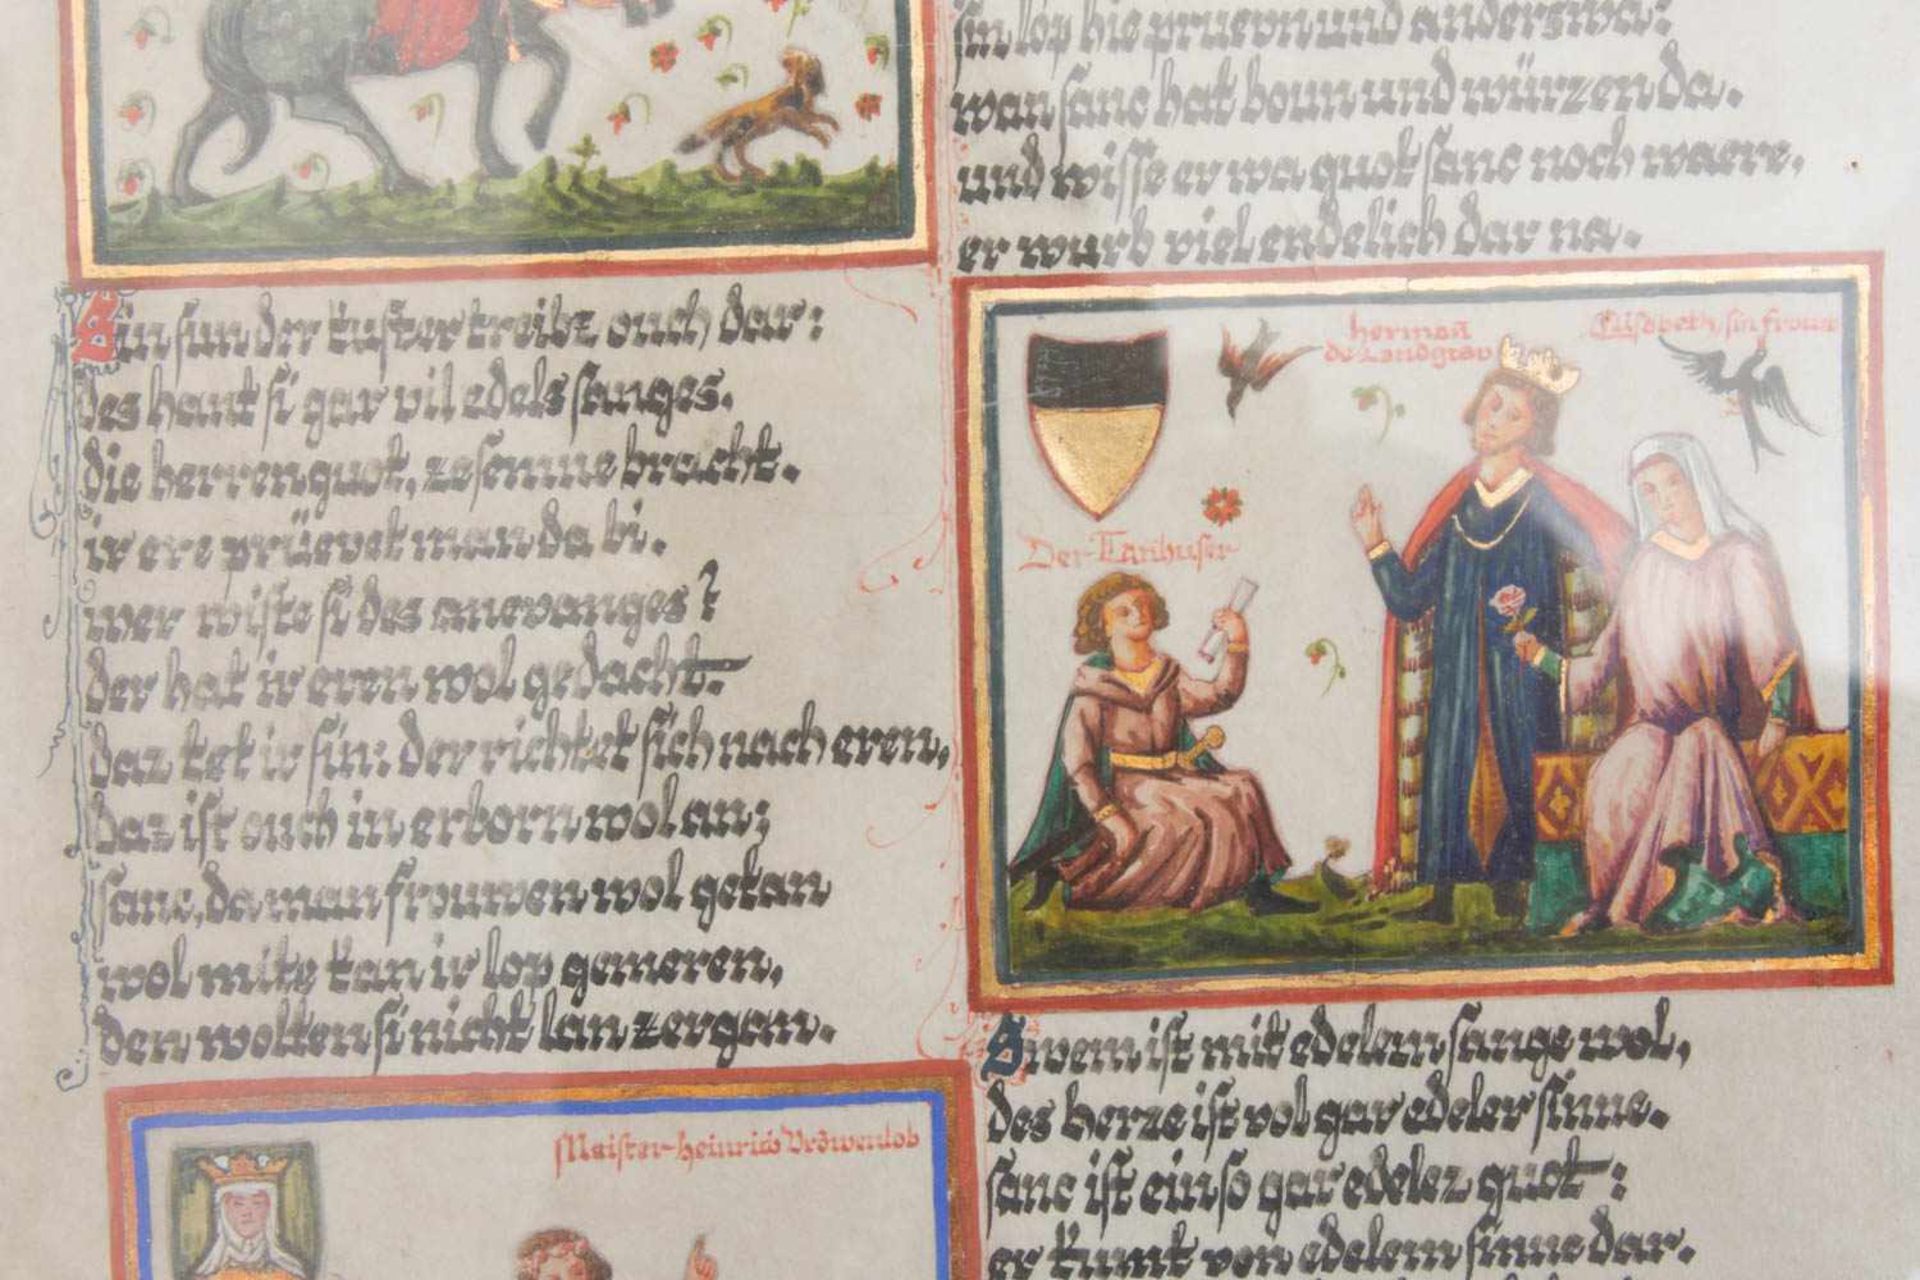 Sin sun der kuster treibz ouch dar:
des hant si gar vil edels sanges.
die herren guot, zesemne bracht.
ir ere prüevet man da bi.
wer wiste si des anevanges?
der hat ir eren wol gedacht.
daz tet ir sin: der richtet sich nach eren,
daz ist ouch in erborn wol an;
sanc, da man frouwen wol getan
wol mite kan ir lop gemeren,
den wolten si nicht lan zergan.
Meister heinrich Vrowenlob
sin lop hie pruevn und anderswa:
wan sanc hat boun und würzen da.
und wisse er wa guot sanc noch waere,
er wurb viel endelich dar na.
herman
de Landgrav
Elisabeth, sin frouw
Der Tanhuser
Swem ist mit edelem sange wol,
des herze ist vol gar edeler sinne.
sanc ist ein so gar edelez guot:
er kumt von edelem sinne dar.